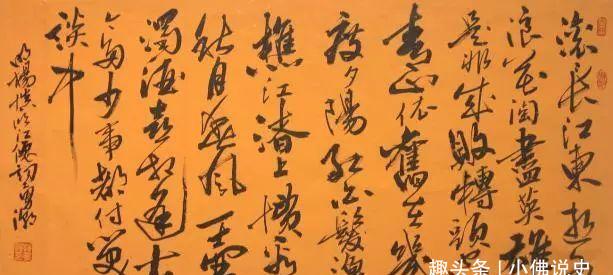 滚長江東逝
浪花淘盡英雄
是非成敗轉頭
青山依舊在幾
度夕陽紅白髮漁
樵江渚上慣看
秋月春風一壺
濁酒喜相逢古
今多少事都付笑
談中
明楊慎臨江仙詞
趣头条 | 小佛说史